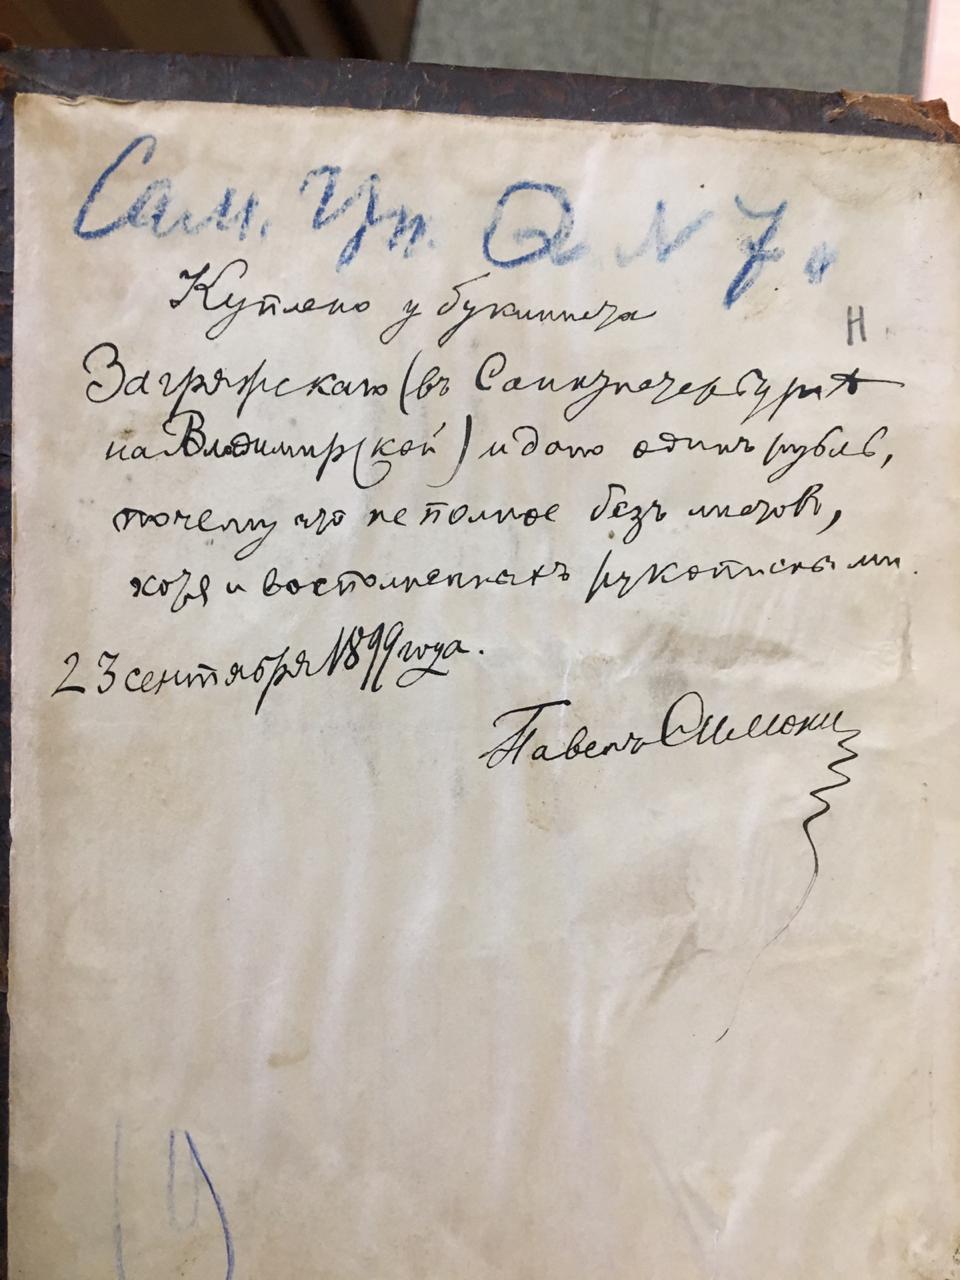 Сам.
№ 7.
Куплено у букиниста
Н.
Загряжскаго (въ Санктпетербургѣ
на Владимирской) и дано одинъ рубль,
почему что неполное безъ листовъ,
хотя и восполненныхъ рукописными.
23 сентября 1899 года.
Павелъ Симони